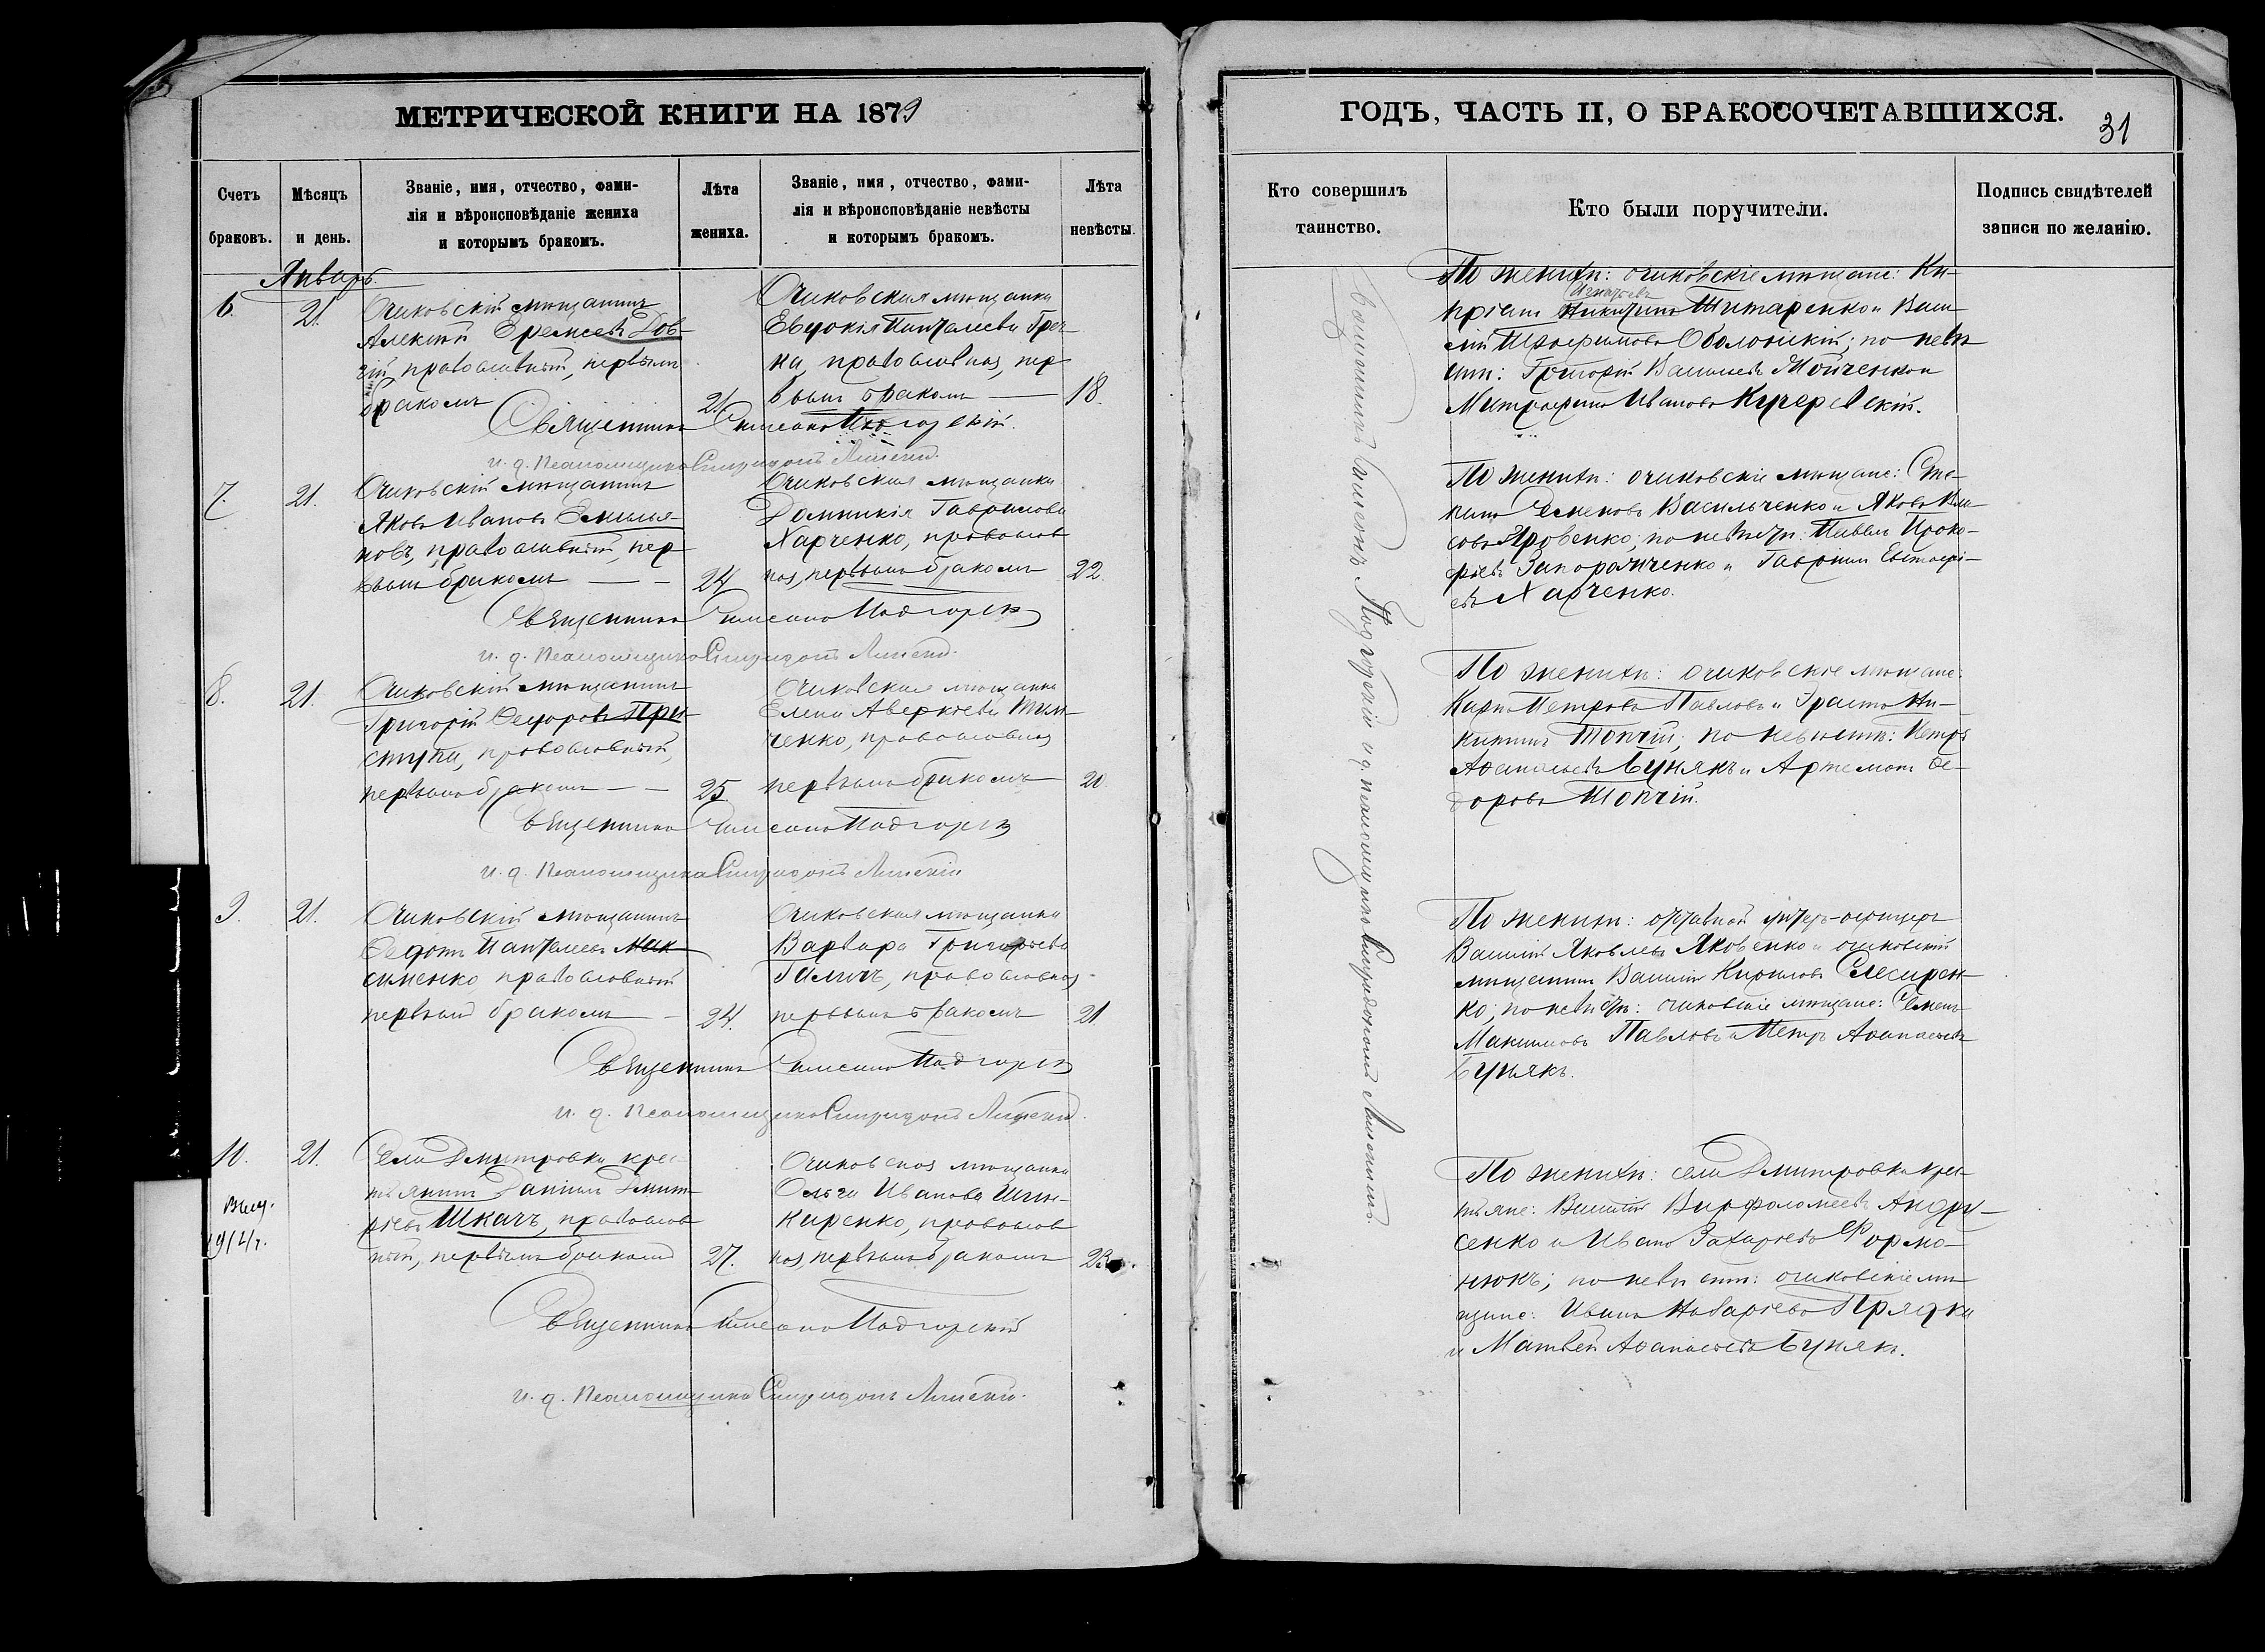 МЕТРИЧЕСКОЙ КНИГИ НА 1879
Счетъ браковъ.
Мѣсяцъ и день.
Званіе, имя, отчество, фами-
лія и вѣроисповѣданіе жениха
и которымъ бракомъ.
Лѣта жениха.
Званіе, имя, отчество, фами-
лія и вѣроисповѣданіе невѣсты
и которымъ бракомъ.
Лѣта невѣсты.
Январь.
6.
21.
Очаковскій мѣщанинъ
Алексѣй Еремеевъ Дов-
гій, православный, первымъ
бракомъ
21.
Очаковская мѣщанка
Евдокія Пантелеева Греч-
ка, православная, пер
вымъ бракомъ
18.
Священникъ Симеонъ Подгорскій.
и. д. псаломщика Спиридонъ
7.
21.
Очаковскій мѣщанинъ
Яковъ Ивановъ Емилья-
новъ, православный, пер
вымъ бракомъ
24
Очаковская мѣщанка
Домникія Гаврилова
Харченко, православ
ная, первымъ бракомъ
22.
Священникъ Симеонъ Подгорскі
и. д. псаломщика Спиридонъ
8.
21.
Очаковскій мѣщанинъ
Григорій Ѳедоровъ При-
ступа, православный,
первымъ бракомъ
25
Очаковская мѣщанка
Елена Аверкіева Тим-
ченко, православная
первымъ бракомъ
20
Священникъ Симеонъ Подгорскі
и. д. псаломщика Спиридонъ
9.
21.
Очаковскій мѣщанинъ
Ѳедотъ Пантелеевъ Мак-
сименко православный
первымъ бракомъ
24.
Очаковская мѣщанка
Варвара Григорьева
Галичъ, православная
первымъ бракомъ
21.
Священникъ Симеонъ Подгорскі
и. д. псаломщика Спиридонъ
10.
21.
Выд.
1914 г.
Села Дмитровки крес-
тьянинъ Даніилъ Дмит-
ріевъ Шкачъ, православ
ный, первымъ бракомъ
27.
Очаковская мѣщанка
Ольга Иванова Шин-
каренко, православ
ная, первымъ бракомъ
23
Священникъ Симеонъ Подгорскій
и. д. псаломщика Спиридонъ
ГОДЪ, ЧАСТЬ II, О БРАКОСОЧЕТАВШИХСЯ.
31
Кто совершилъ таинство.
Кто были поручители.
Подпись свидѣтелей записи по желанію.
Священникъ Симеонъ Подгорскій и д. псаломщика Спиридонъ
По женихѣ: очаковскіе мѣщане: Ки-
Игнатьевъ
пріанъ Никитинъ Шитаренко и Васи-
лій Оболонскій; по невѣ
стѣ: Григорій Васильевъ Мойченко и
Митрофанъ Ивановъ Кучеревскій.
По женихѣ: очаковскіе мѣщане: Сте-
панъ Семеновъ Васильченко и Яковъ
Яровенко; по невѣстѣ: Павелъ Проко-
фіевъ Запорожченко и Гавріилъ Евстафі-
евъ Харченко.
По женихѣ: очаковскіе мѣщане:
Карпъ Петровъ Павловъ и Ерастъ Ни-
китинъ Топчій; по невѣстѣ: Петръ
Аѳанасьевъ Бунякъ и Артемонъ Ѳе-
доровъ Топчій.
По женихѣ: отставной унтеръ-офицеръ
Василій Яковлевъ Яковенко и очаковскій
мѣщанинъ Василій Кириловъ Слесарен-
ко; по невѣстѣ: очаковскіе мѣщане: Семенъ
Максимовъ Павловъ и Петръ Аѳанасьевъ
Бунякъ.
По женихѣ: села Дмитровки крес-
тьяне: Василій Варфоломеевъ Андру-
сенко и Иванъ Захаріевъ Формо-
нюкъ; по невѣстѣ: очаковскіе мѣ
щане: Иванъ Назаріевъ Прядка
и Матвей Аѳанасьевъ Бунякъ.